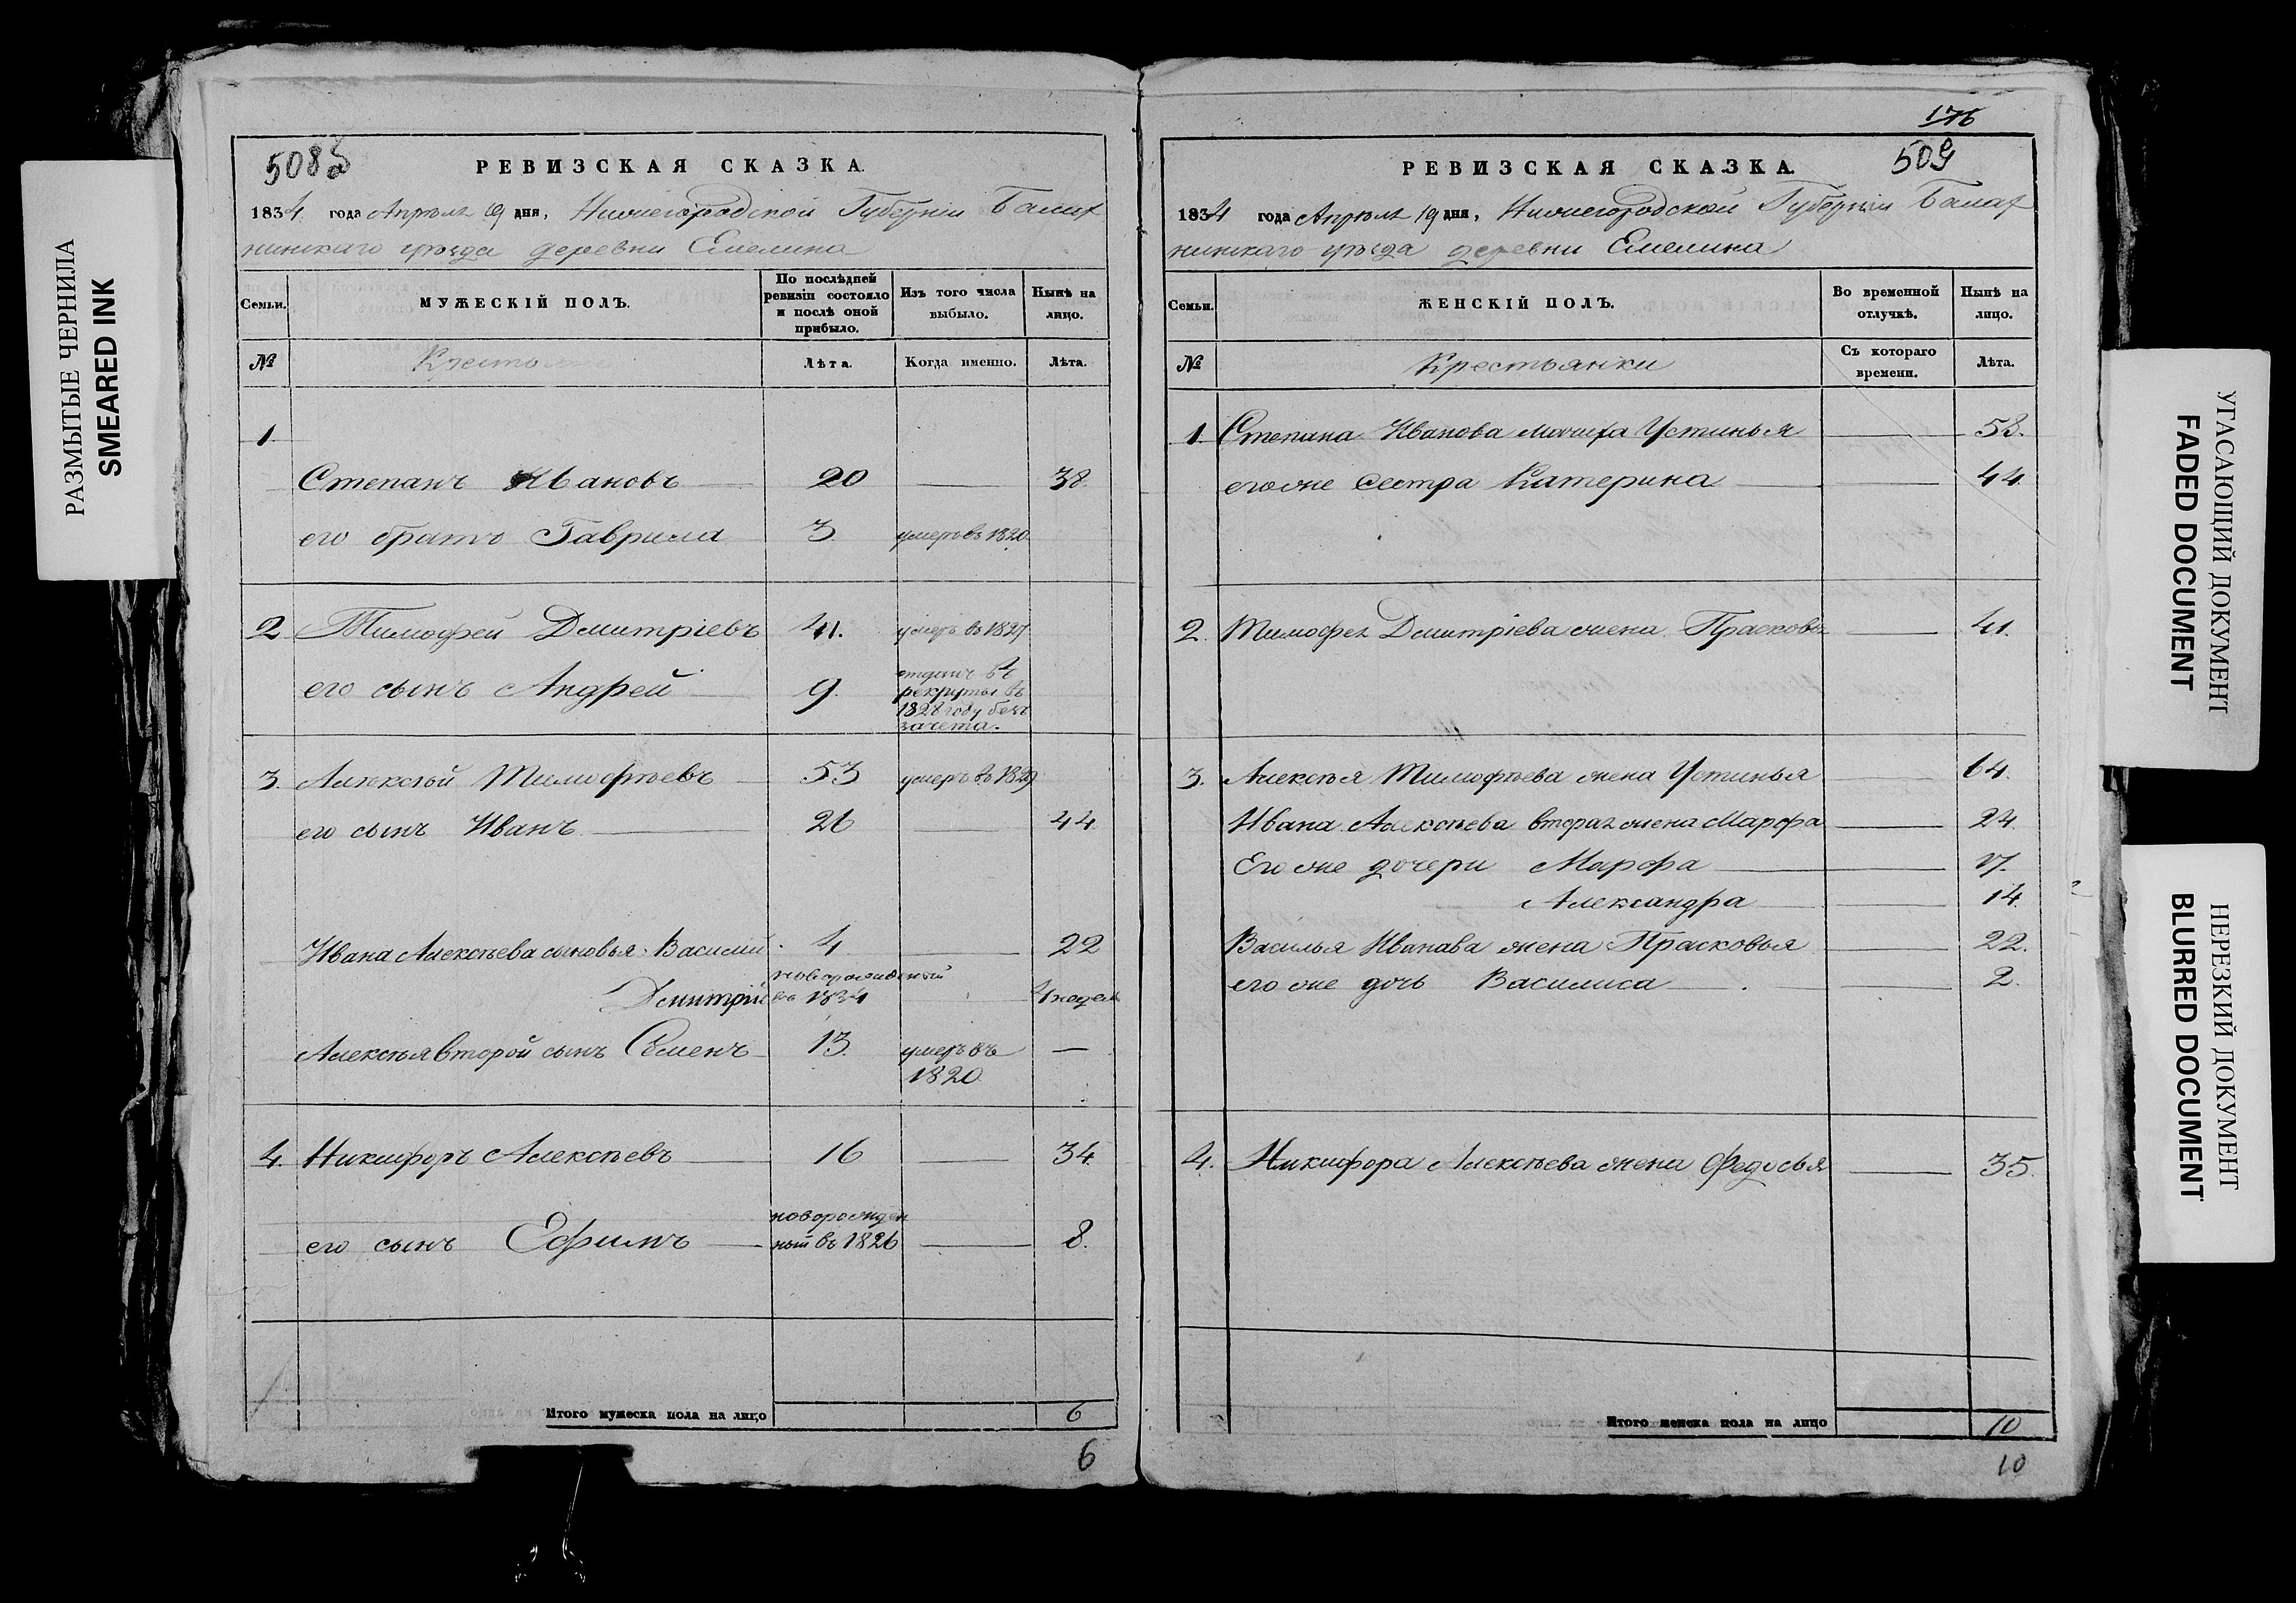 РАЗМЫТЫЕ ЧЕРНИЛА
SMEARED INK
РЕВИЗСКАЯ СКАЗКА.
1834 года Апреля 19 дня, Нижегородской Губерніи Балах
нинскаго уѣзда деревни Емелина
Семьи.
МУЖЕСКІЙ ПОЛЪ.
По послѣдней
ревизіи состояло
и послѣ оной
прибыло.
Изъ того числа
выбыло.
Нынѣ на
лицо.
№
Лѣта.
Когда именно.
Лѣта.
1
Степанъ Ивановъ 20 — 38
его братъ Гаврила 3 умеръ въ 1820
2 Тимофей Дмитріевъ 41. умеръ въ 1827
его сынъ Андрей 9. отданъ въ
рекруты въ
1828 году безъ
зачета.
3. Алексѣй Тимофѣевъ 53 умеръ въ 1829
его сынъ Иванъ 26 — 44
Ивана Алексѣева сыновья Василий 4 — 22
новорожденый
Дмитрій въ 1834 4 недели
Алексѣя второй сынъ Семенъ 13. умеръ въ —
1820
4. Никифоръ Алексѣевъ 16 — 34.
новорожден
его сынъ Ефимъ ный въ 1826 — 8.
Итого мужеска пола на лицо 6
6
176
509
РЕВИЗСКАЯ СКАЗКА.
1834 года Апреля 19 дня, Нижегородской Губерніи Балах
нинскаго уѣзда деревни Емелина
Семьи.
ЖЕНСКІЙ ПОЛЪ.
Во временной
отлучкѣ.
Нынѣ на
лицо.
№
Крестьянки
Съ котораго
времени.
Лѣта.
1. Степана Иванова мачиха Устинья — 53.
его же сестра Катерина — 44.
2. Тимофея Дмитріева жена Прасковья — 41.
3. Алексѣя Тимофѣева жена Устинья — 64.
Ивана Алексѣева вторая жена Марфа — 24.
Его же дочери Марфа — 17.
Александра — 14.
Василья Иванава жена Прасковья — 22.
его же дочь Василиса — 2.
4. Никифора Алексѣева жена Федосья — 35.
Итого женска пола на лицо 10
10
УГАСАЮЩИЙ ДОКУМЕНТ
FADED DOCUMENT
НЕРЕЗКИЙ ДОКУМЕНТ
BLURRED DOCUMENT